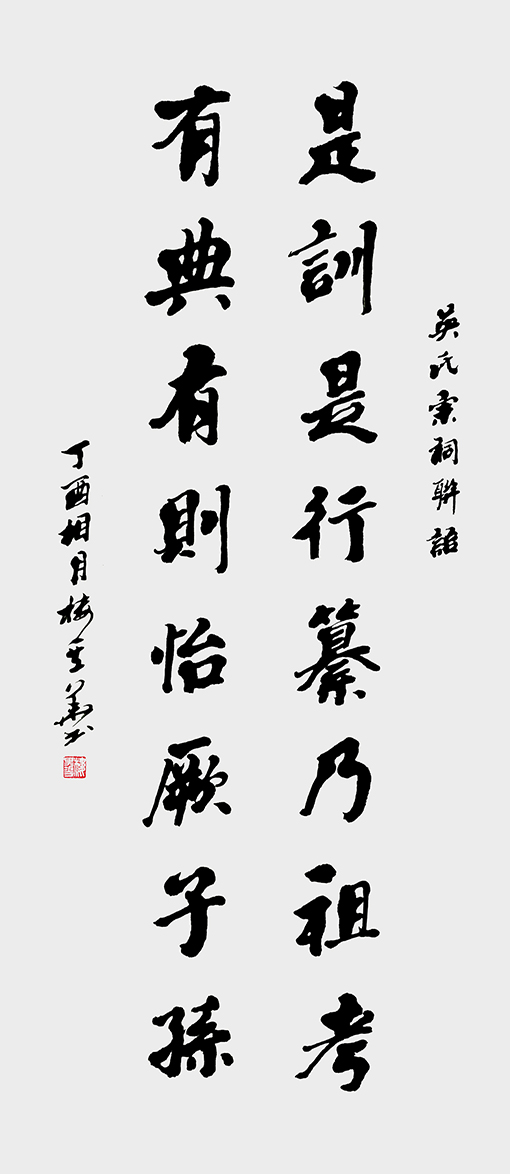 吳氏宗祠聯語
是訓是行纂乃祖考
有典有則怡厥子孫
丁酉相月梅其華书